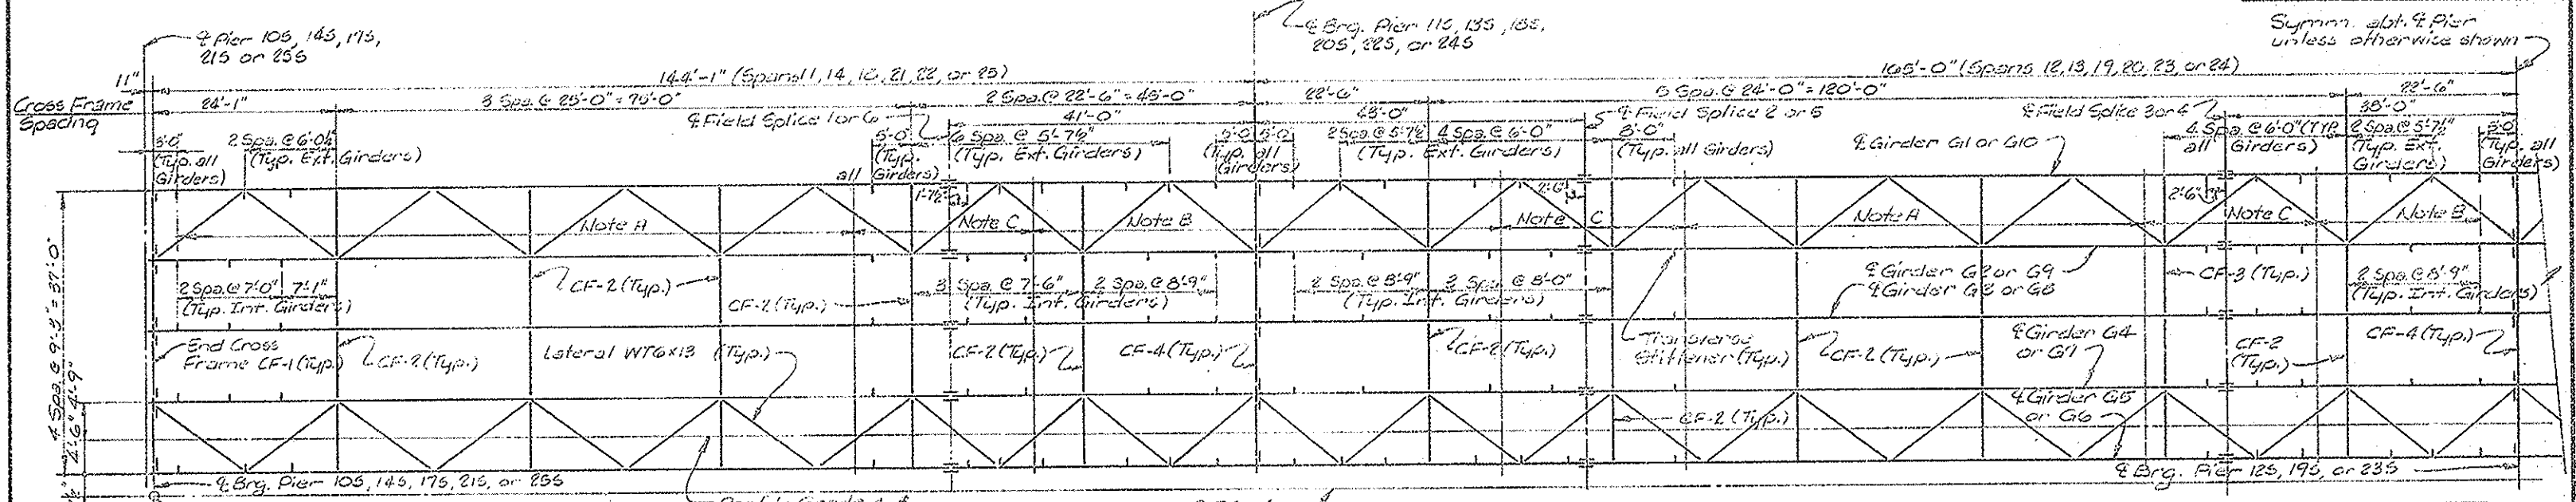 ℄ Pier 10S, 14S, 17S,
21S or 25S
℄ Brg. Pier 11S, 13S, 18S,
20S, 22S, or 24S
Symm. abt. ℄ Pier
unless otherwise shown
11"
144'-1" (Spans 11, 14, 18, 21, 22, or 25)
165'-0" (Spans 12, 13, 19, 20, 23, or 24)
Cross Frame
Spacing
24'-1"
3 Spa. @ 25'-0" = 75'-0"
2 Spa. @ 22'-6" = 45'-0"
22'-6"
5 Spa. @ 24'-0" = 120'-0"
22'-6"
℄ Field Splice 1 or 6
41'-0"
43'-0"
℄ Field Splice 2 or 5
℄ Field Splice 3 or 4
38'-0"
(Typ. all
Girders)
2 Spa. @ 6'-0½"
(Typ. Ext. Girders)
5'-0"
(Typ.
all Girders)
6 Spa. @ 5'-7½"
(Typ. Ext. Girders)
5'-0" 5'-0"
(Typ. all
Girders)
2 Spa. @ 5'-7½" 4 Spa. @ 6'-0"
(Typ. Ext. Girders)
(Typ. all Girders)
℄ Girder G1 or G10
4 Spa. @ 6'-0" (Typ.
all Girders)
2 Spa. @ 5'-7½"
(Typ. Ext.
Girders)
5'-0"
(Typ. all
Girders)
1'-7½"
2'-6"
2'-6"
Note A
Note C
Note B
Note C
Note A
Note C
Note B
4 Spa. @ 9'-3" = 37'-0"
2 Spa. @ 7'-0" 7'-1"
(Typ. Int. Girders)
CF-2 (Typ.)
CF-2 (Typ.)
3 Spa. @ 7'-6" 2 Spa. @ 8'-9"
(Typ. Int. Girders)
2 Spa. @ 8'-9" 3 Spa. @ 8'-0"
(Typ. Int. Girders)
℄ Girder G2 or G9
℄ Girder G3 or G8
CF-3 (Typ.)
2 Spa. @ 8'-9"
(Typ. Int. Girders)
End Cross
Frame CF-1 (Typ.)
CF-2 (Typ.)
Lateral WT6x13 (Typ.)
CF-2 (Typ.)
CF-4 (Typ.)
CF-2 (Typ.)
Transverse
Stiffener (Typ.)
CF-2 (Typ.)
℄ Girder G4
or G7
CF-2
(Typ.)
CF-4 (Typ.)
4'-6" 4'-9"
CF-2 (Typ.)
℄ Girder G5
or G6
℄ Brg. Pier 10S, 14S, 17S, 21S, or 25S
℄ Brg. Pier 12S, 19S, or 23S